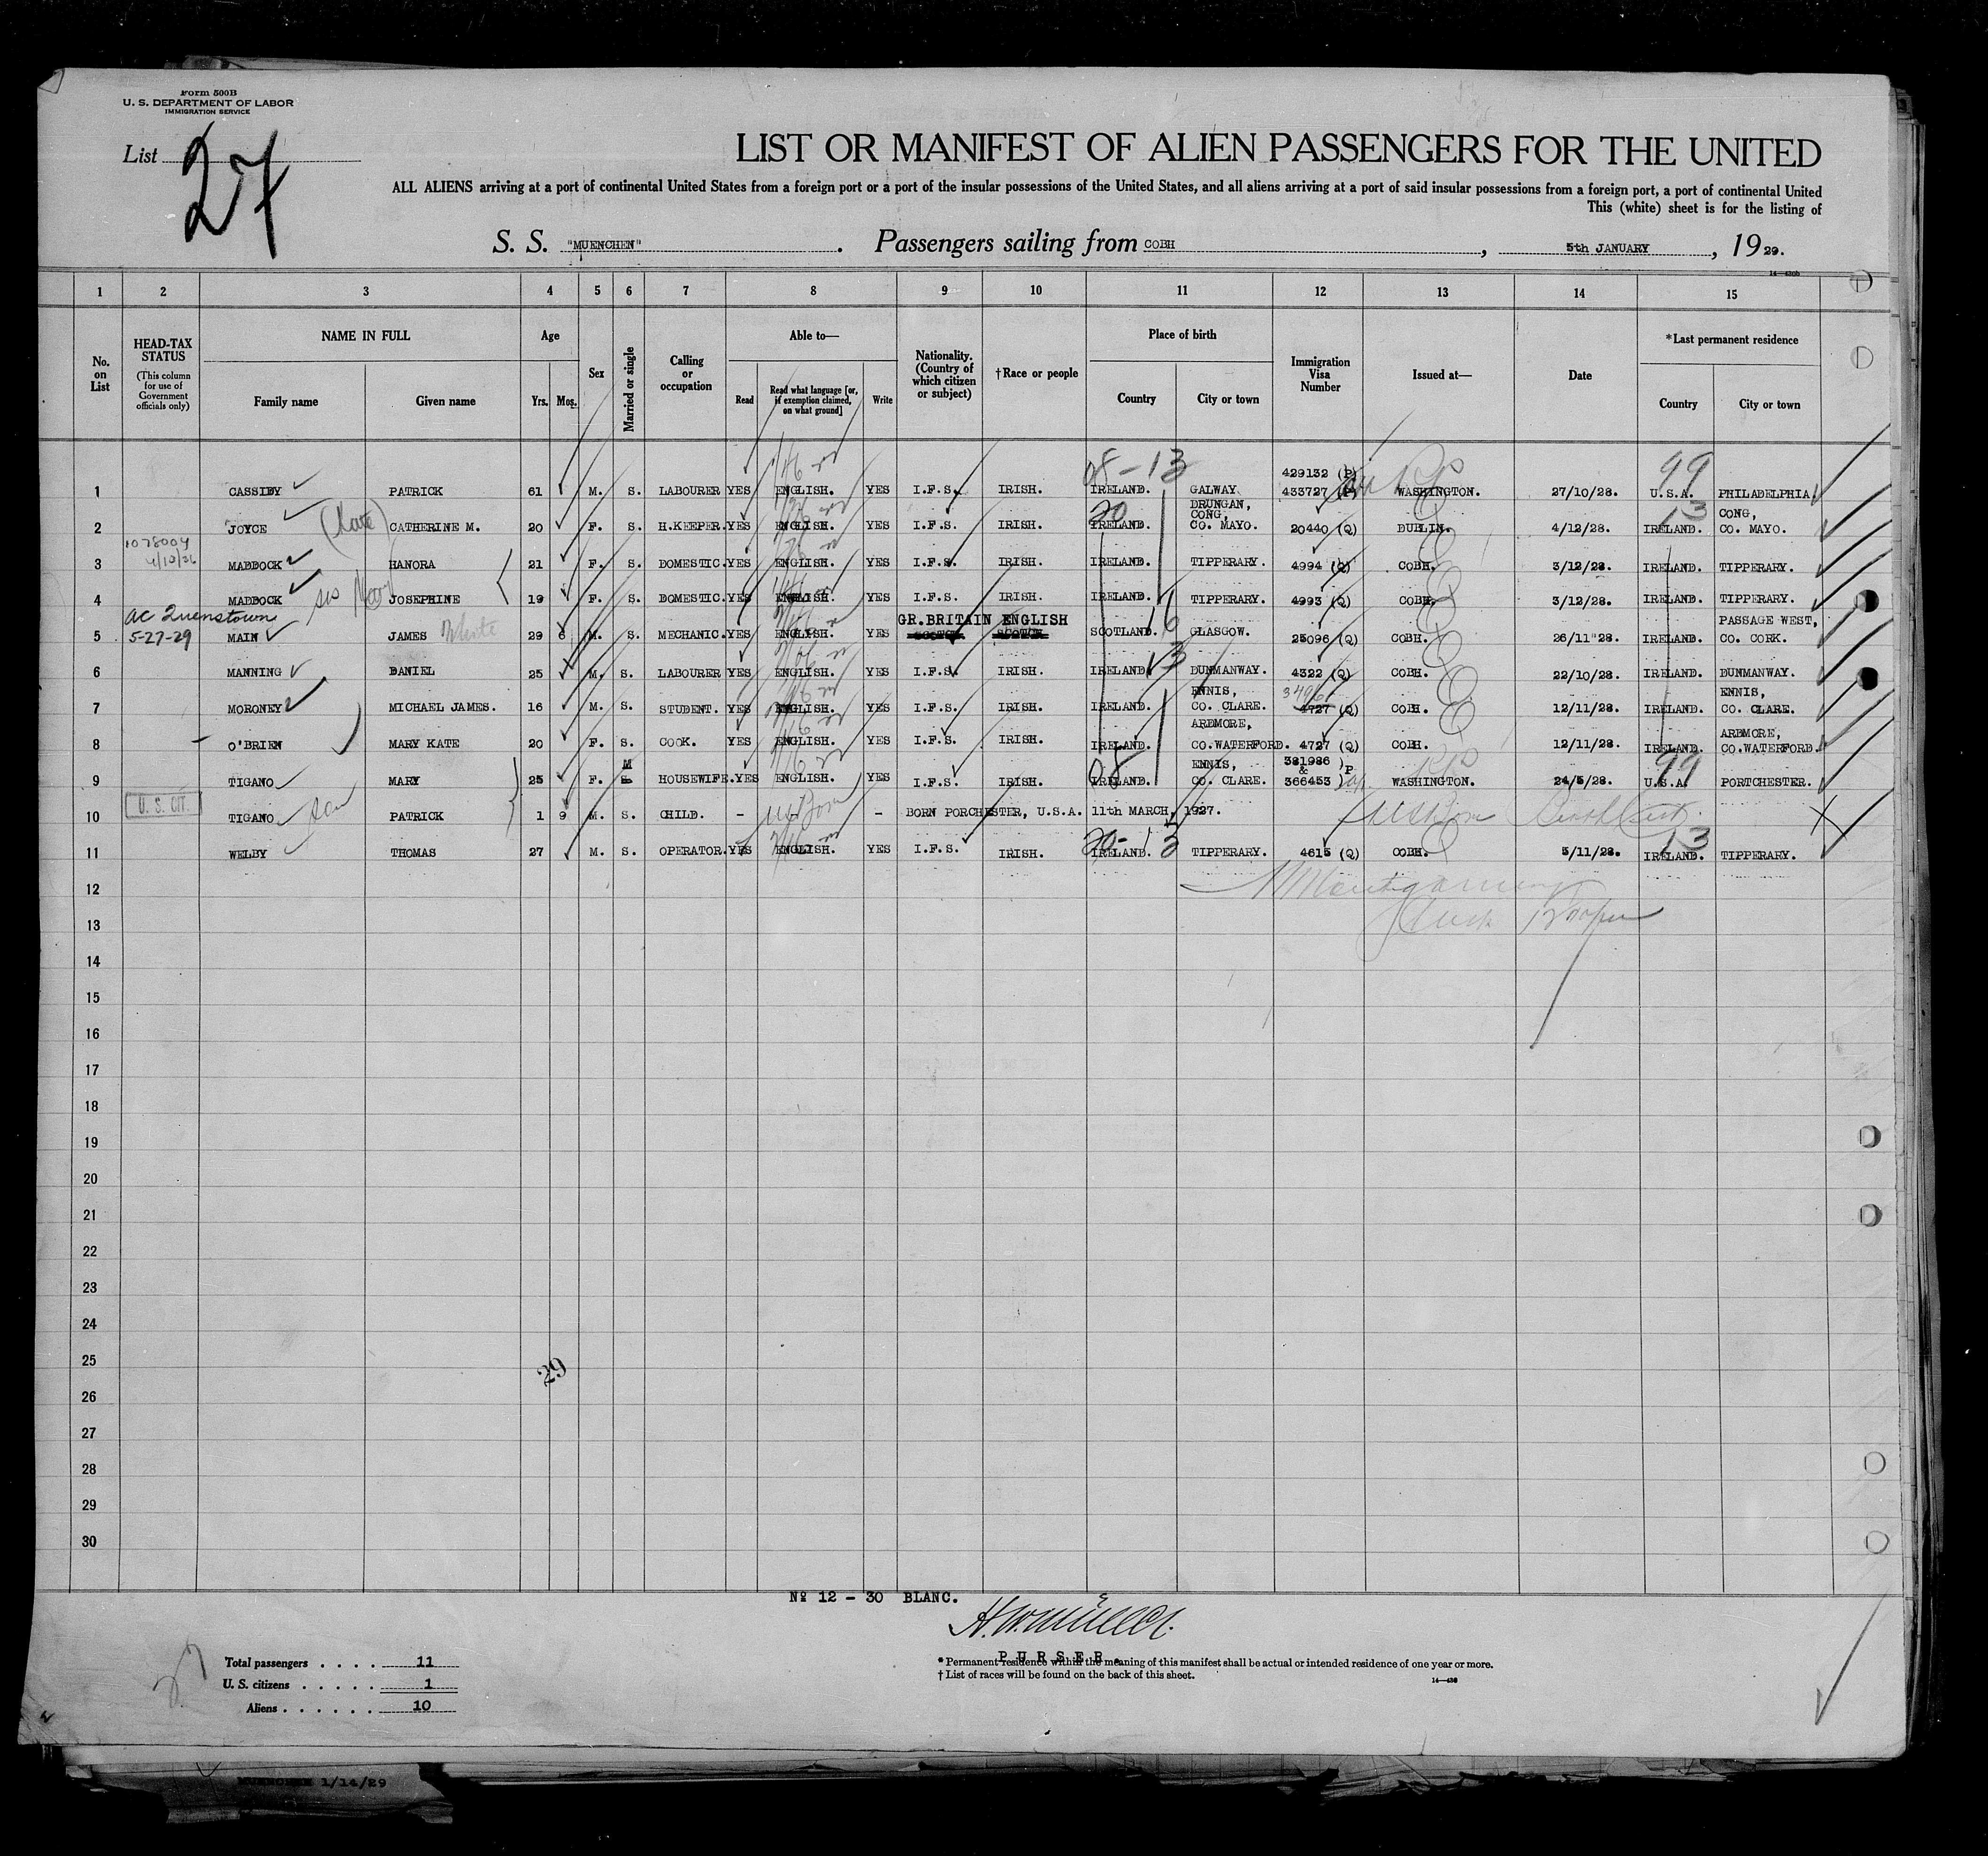 Form 500B
U. S. DEPARTMENT OF LABOR
IMMIGRATION SERVICE
List 27
LIST OR MANIFEST OF ALIEN PASSENGERS FOR THE UNITED
ALL ALIENS arriving at a port of continental United States from a foreign port or a port of the insular possessions of the United States, and all aliens arriving at a port of said insular possessions from a foreign port, a port of continental United
This (white) sheet is for the listing of
S. S. "MUENCHEN" . Passengers sailing from COBH , 5th JANUARY , 19 29.
1 2 3 4 5 6 7 8 9 10 11 12 13 14 15
No. on List
HEAD-TAX STATUS (This column for use of Government officials only)
NAME IN FULL
Family name Given name
Age
Yrs. Mos.
Sex
Married or single
Calling or occupation
Able to—
Read
Read what language [or, if exemption claimed, on what ground]
Write
Nationality. (Country of which citizen or subject)
†Race or people
Place of birth
Country City or town
Immigration Visa Number
Issued at—
Date
*Last permanent residence
Country City or town
08-13 429132 (P) 99
1 CASSIDY PATRICK 61 M. S. LABOURER YES ENGLISH. YES I.F.S. IRISH. IRELAND. GALWAY 433727 (P) WASHINGTON. 27/10/28. U.S.A. PHILADELPHIA.
2 JOYCE (Kate) CATHERINE M. 20 F. S. H.KEEPER. YES ENGLISH. YES I.F.S. IRISH. 20 IRELAND. DRUNGAN, CONG, CO. MAYO. 20440 (Q) DUBLIN. 4/12/28. 13 IRELAND. CONG, CO. MAYO.
1078004
4/10/36
3 MADDOCK HANORA 21 F. S. DOMESTIC. YES ENGLISH. YES I.F.S. IRISH. IRELAND. TIPPERARY. 4994 (Q) COBH. 3/12/28. IRELAND. TIPPERARY.
4 MADDOCK sis JOSEPHINE 19 F. S. DOMESTIC. YES ENGLISH. YES I.F.S. IRISH. IRELAND. TIPPERARY. 4993 (Q) COBH. 3/12/28. IRELAND. TIPPERARY.
AC Queenstown
5-27-29
GR.BRITAIN ENGLISH
5 MAIN JAMES White 29 6 M. S. MECHANIC. YES ENGLISH. YES SCOTCH. SCOTCH. SCOTLAND. GLASGOW. 25096 (Q) COBH. 26/11"28. IRELAND. PASSAGE WEST, CO. CORK.
6 MANNING DANIEL 25 M. S. LABOURER YES ENGLISH. YES I.F.S. IRISH. IRELAND. DUNMANWAY. 4322 (Q) COBH. 22/10/28. IRELAND. DUNMANWAY.
7 MORONEY MICHAEL JAMES. 16 M. S. STUDENT. YES ENGLISH. YES I.F.S. IRISH. IRELAND. ENNIS, CO. CLARE. 3496 4727 (Q) COBH. 12/11/28. IRELAND. ENNIS, CO. CLARE.
8 O'BRIEN MARY KATE 20 F. S. COOK. YES ENGLISH. YES I.F.S. IRISH. IRELAND. ARDMORE, CO.WATERFORD. 4727 (Q) COBH. 12/11/28. IRELAND. ARDMORE, CO.WATERFORD.
9 TIGANO MARY 25 F. M S. HOUSEWIFE. YES ENGLISH. YES I.F.S. IRISH. 08 IRELAND. ENNIS, CO. CLARE. 381986 & 366453 ) P WASHINGTON. 24/5/28. 99 U.S.A. PORTCHESTER.
U. S. CIT.
10 TIGANO son PATRICK 1 9 M. S. CHILD. - US Born - BORN PORCHESTER, U.S.A. 11th MARCH, 1927. US Born Birth Cert.
11 WELBY THOMAS 27 M. S. OPERATOR. YES ENGLISH. YES I.F.S. IRISH. 20-13 IRELAND. TIPPERARY. 4615 (Q) COBH. 5/11/28. 13 IRELAND. TIPPERARY.
12
13
14
15
16
17
18
19
20
21
22
23
24
25
29
26
27
28
29
30
Nº 12 - 30 BLANC.
H. W. Müller.
PURSER.
* Permanent residence within the meaning of this manifest shall be actual or intended residence of one year or more.
† List of races will be found on the back of this sheet.
Total passengers . . . . 11
U. S. citizens . . . . . 1
Aliens . . . . . . 10
27
MUENCHEN 1/14/29